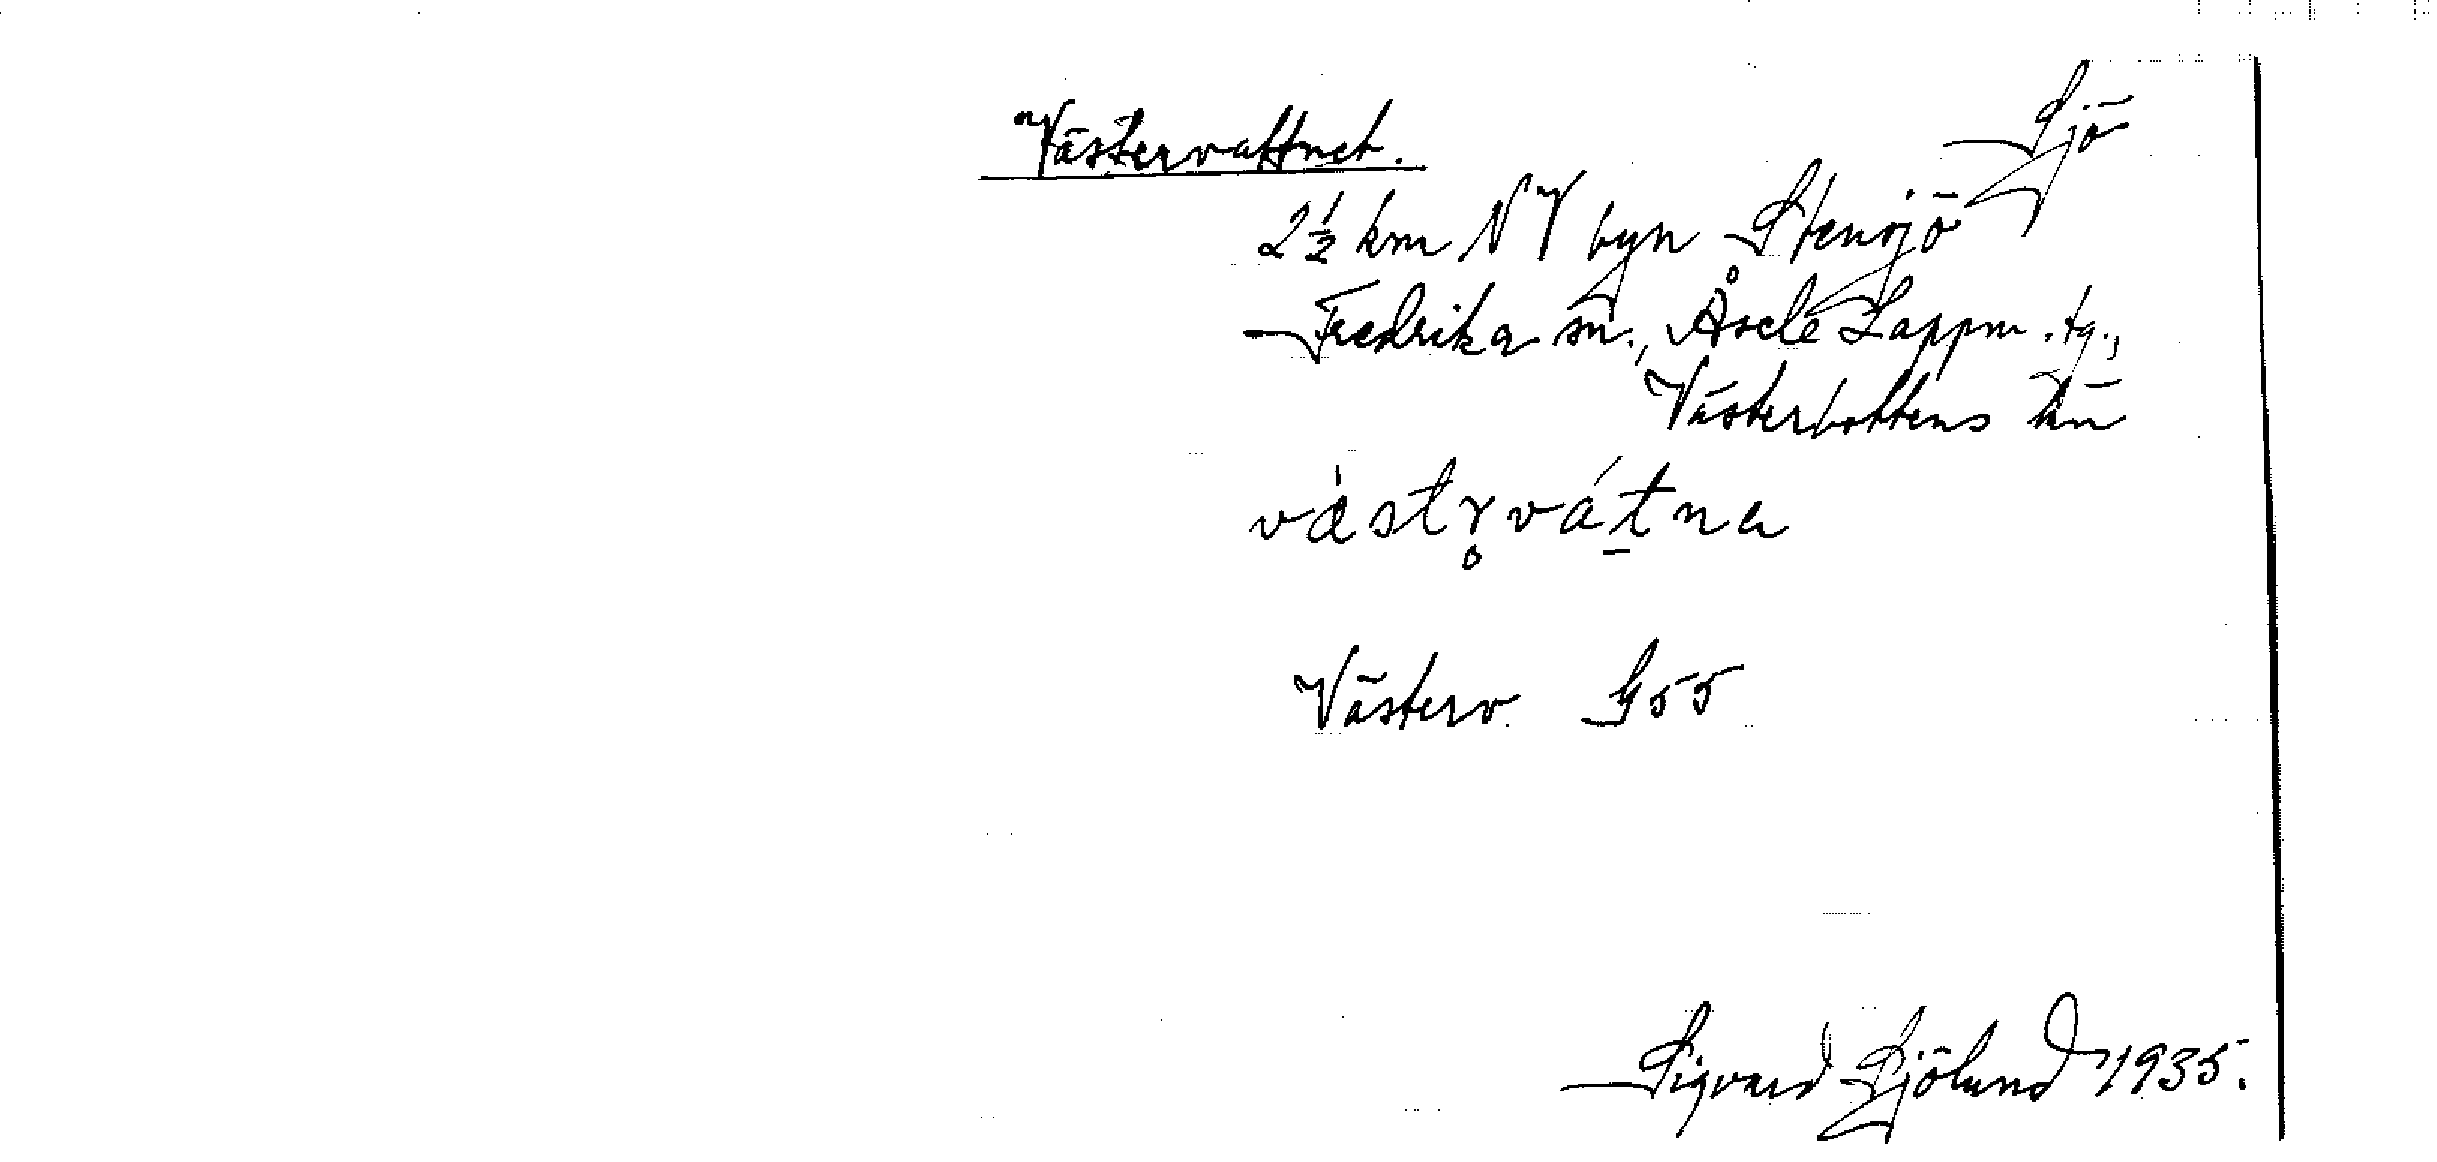 Västervattnet.
Sjö
2½ km NV byn Stensjö
Fredrika sn., Åsele Lappm. tg.,
Västerbottens län
vàstr̥vát̲na
Västerv. G55
Sigvard Sjölund 1935.